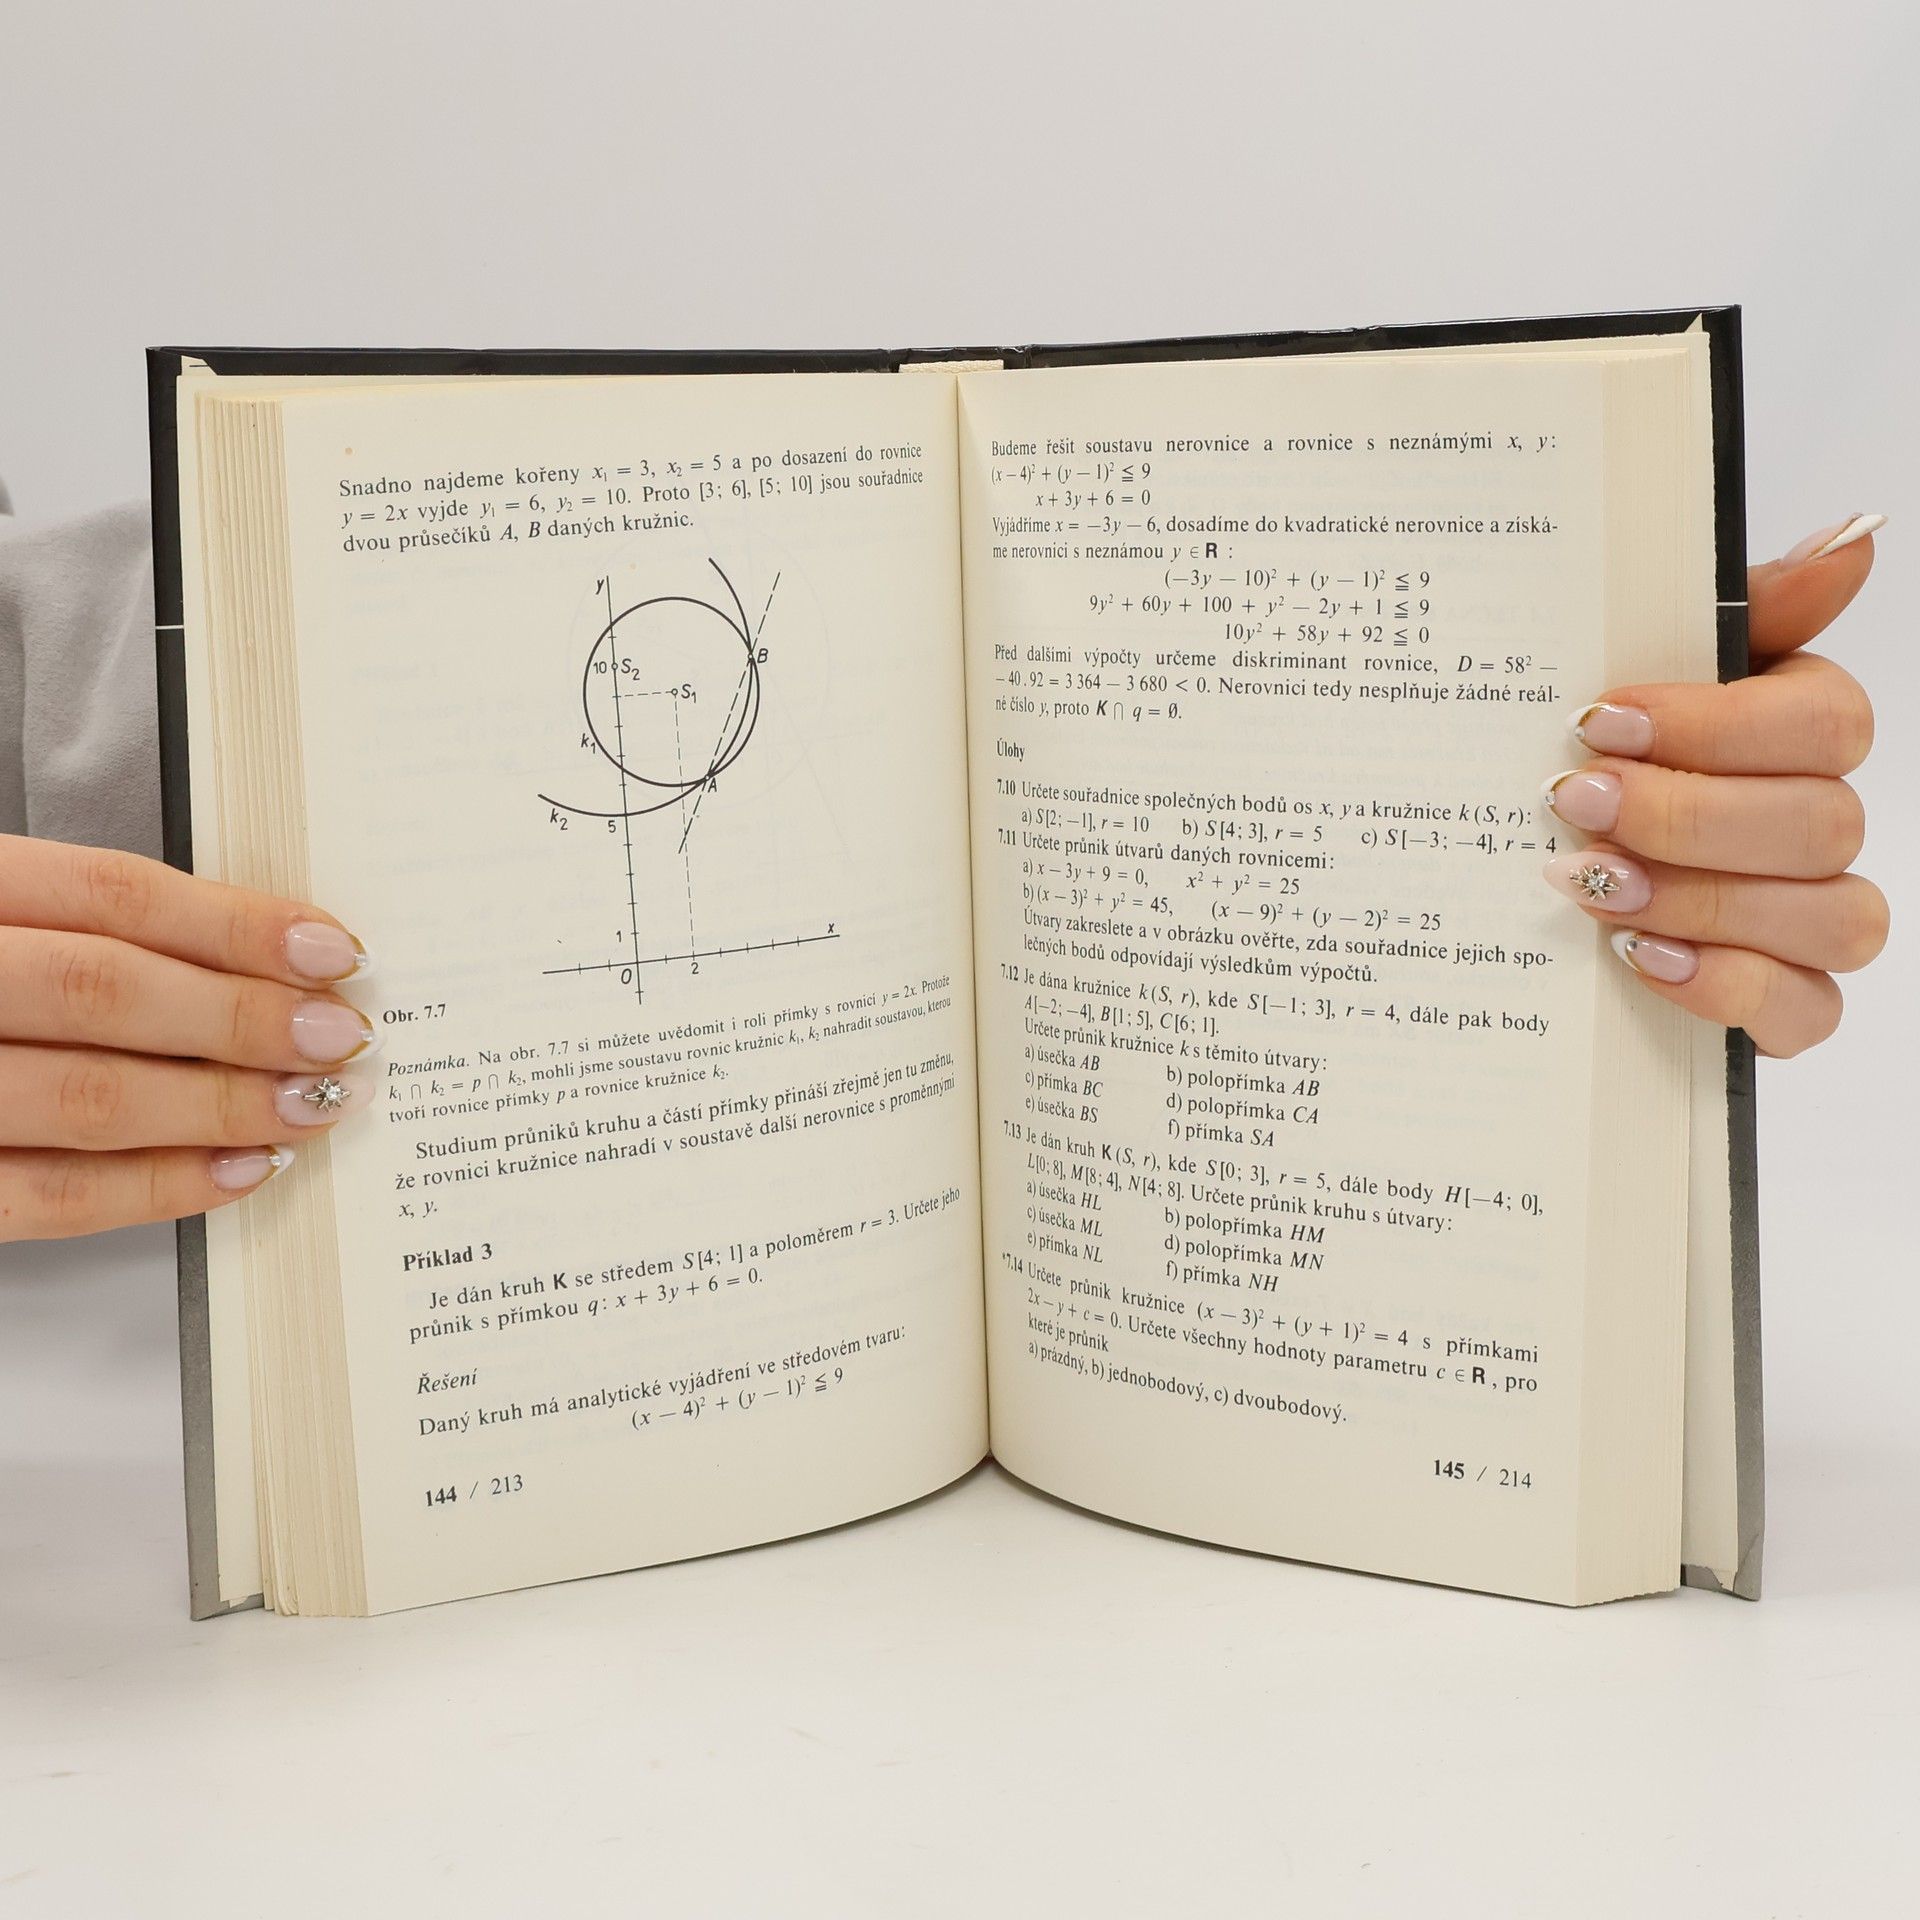 Snadno najdeme kořeny x₁ = 3, x₂ = 5 a po dosazení do rovnice
y = 2x vyjde y₁ = 6, y₂ = 10. Proto [3; 6], [5; 10] jsou souřadnice
dvou průsečíků A, B daných kružnic.
y
10 S₂
B
S₁
k₁
A
k₂
5
1
x
O
2
Obr. 7.7
Poznámka. Na obr. 7.7 si můžete uvědomit i roli přímky s rovnicí y = 2x. Protože
k₁ ∩ k₂ = p ∩ k₂, mohli jsme soustavu rovnic kružnic k₁, k₂ nahradit soustavou, kterou
tvoří rovnice přímky p a rovnice kružnice k₂.
Studium průniků kruhu a částí přímky přináší zřejmě jen tu změnu,
že rovnici kružnice nahradí v soustavě další nerovnice s proměnnými
x, y.
Příklad 3
Je dán kruh K se středem S[4; 1] a poloměrem r = 3. Určete jeho
průnik s přímkou q: x + 3y + 6 = 0.
Řešení
Daný kruh má analytické vyjádření ve středovém tvaru:
(x − 4)² + (y − 1)² ≦ 9
144 / 213
Budeme řešit soustavu nerovnice a rovnice s neznámými x, y:
(x − 4)² + (y − 1)² ≦ 9
x + 3y + 6 = 0
Vyjádříme x = −3y − 6, dosadíme do kvadratické nerovnice a získá-
me nerovnici s neznámou y ∈ R :
(−3y − 10)² + (y − 1)² ≦ 9
9y² + 60y + 100 + y² − 2y + 1 ≦ 9
10y² + 58y + 92 ≦ 0
Před dalšími výpočty určeme diskriminant rovnice, D = 58² −
− 40 . 92 = 3 364 − 3 680 < 0. Nerovnici tedy nesplňuje žádné reál-
né číslo y, proto K ∩ q = Ø.
Úlohy
7.10 Určete souřadnice společných bodů os x, y a kružnice k (S, r):
a) S[2; −1], r = 10 b) S[4; 3], r = 5 c) S[−3; −4], r = 4
7.11 Určete průnik útvarů daných rovnicemi:
a) x − 3y + 9 = 0, x² + y² = 25
b) (x − 3)² + y² = 45, (x − 9)² + (y − 2)² = 25
Útvary zakreslete a v obrázku ověřte, zda souřadnice jejich spo-
lečných bodů odpovídají výsledkům výpočtů.
7.12 Je dána kružnice k (S, r), kde S[−1; 3], r = 4, dále pak body
A[−2; −4], B[1; 5], C[6; 1].
Určete průnik kružnice k s těmito útvary:
a) úsečka AB b) polopřímka AB
c) přímka BC d) polopřímka CA
e) úsečka BS f) přímka SA
7.13 Je dán kruh K (S, r), kde S[0; 3], r = 5, dále body H[−4; 0],
L[0; 8], M[8; 4], N[4; 8]. Určete průnik kruhu s útvary:
a) úsečka HL b) polopřímka HM
c) úsečka ML d) polopřímka MN
e) přímka NL f) přímka NH
*7.14 Určete průnik kružnice (x − 3)² + (y + 1)² = 4 s přímkami
2x − y + c = 0. Určete všechny hodnoty parametru c ∈ R , pro
které je průnik
a) prázdný, b) jednobodový, c) dvoubodový.
145 / 214